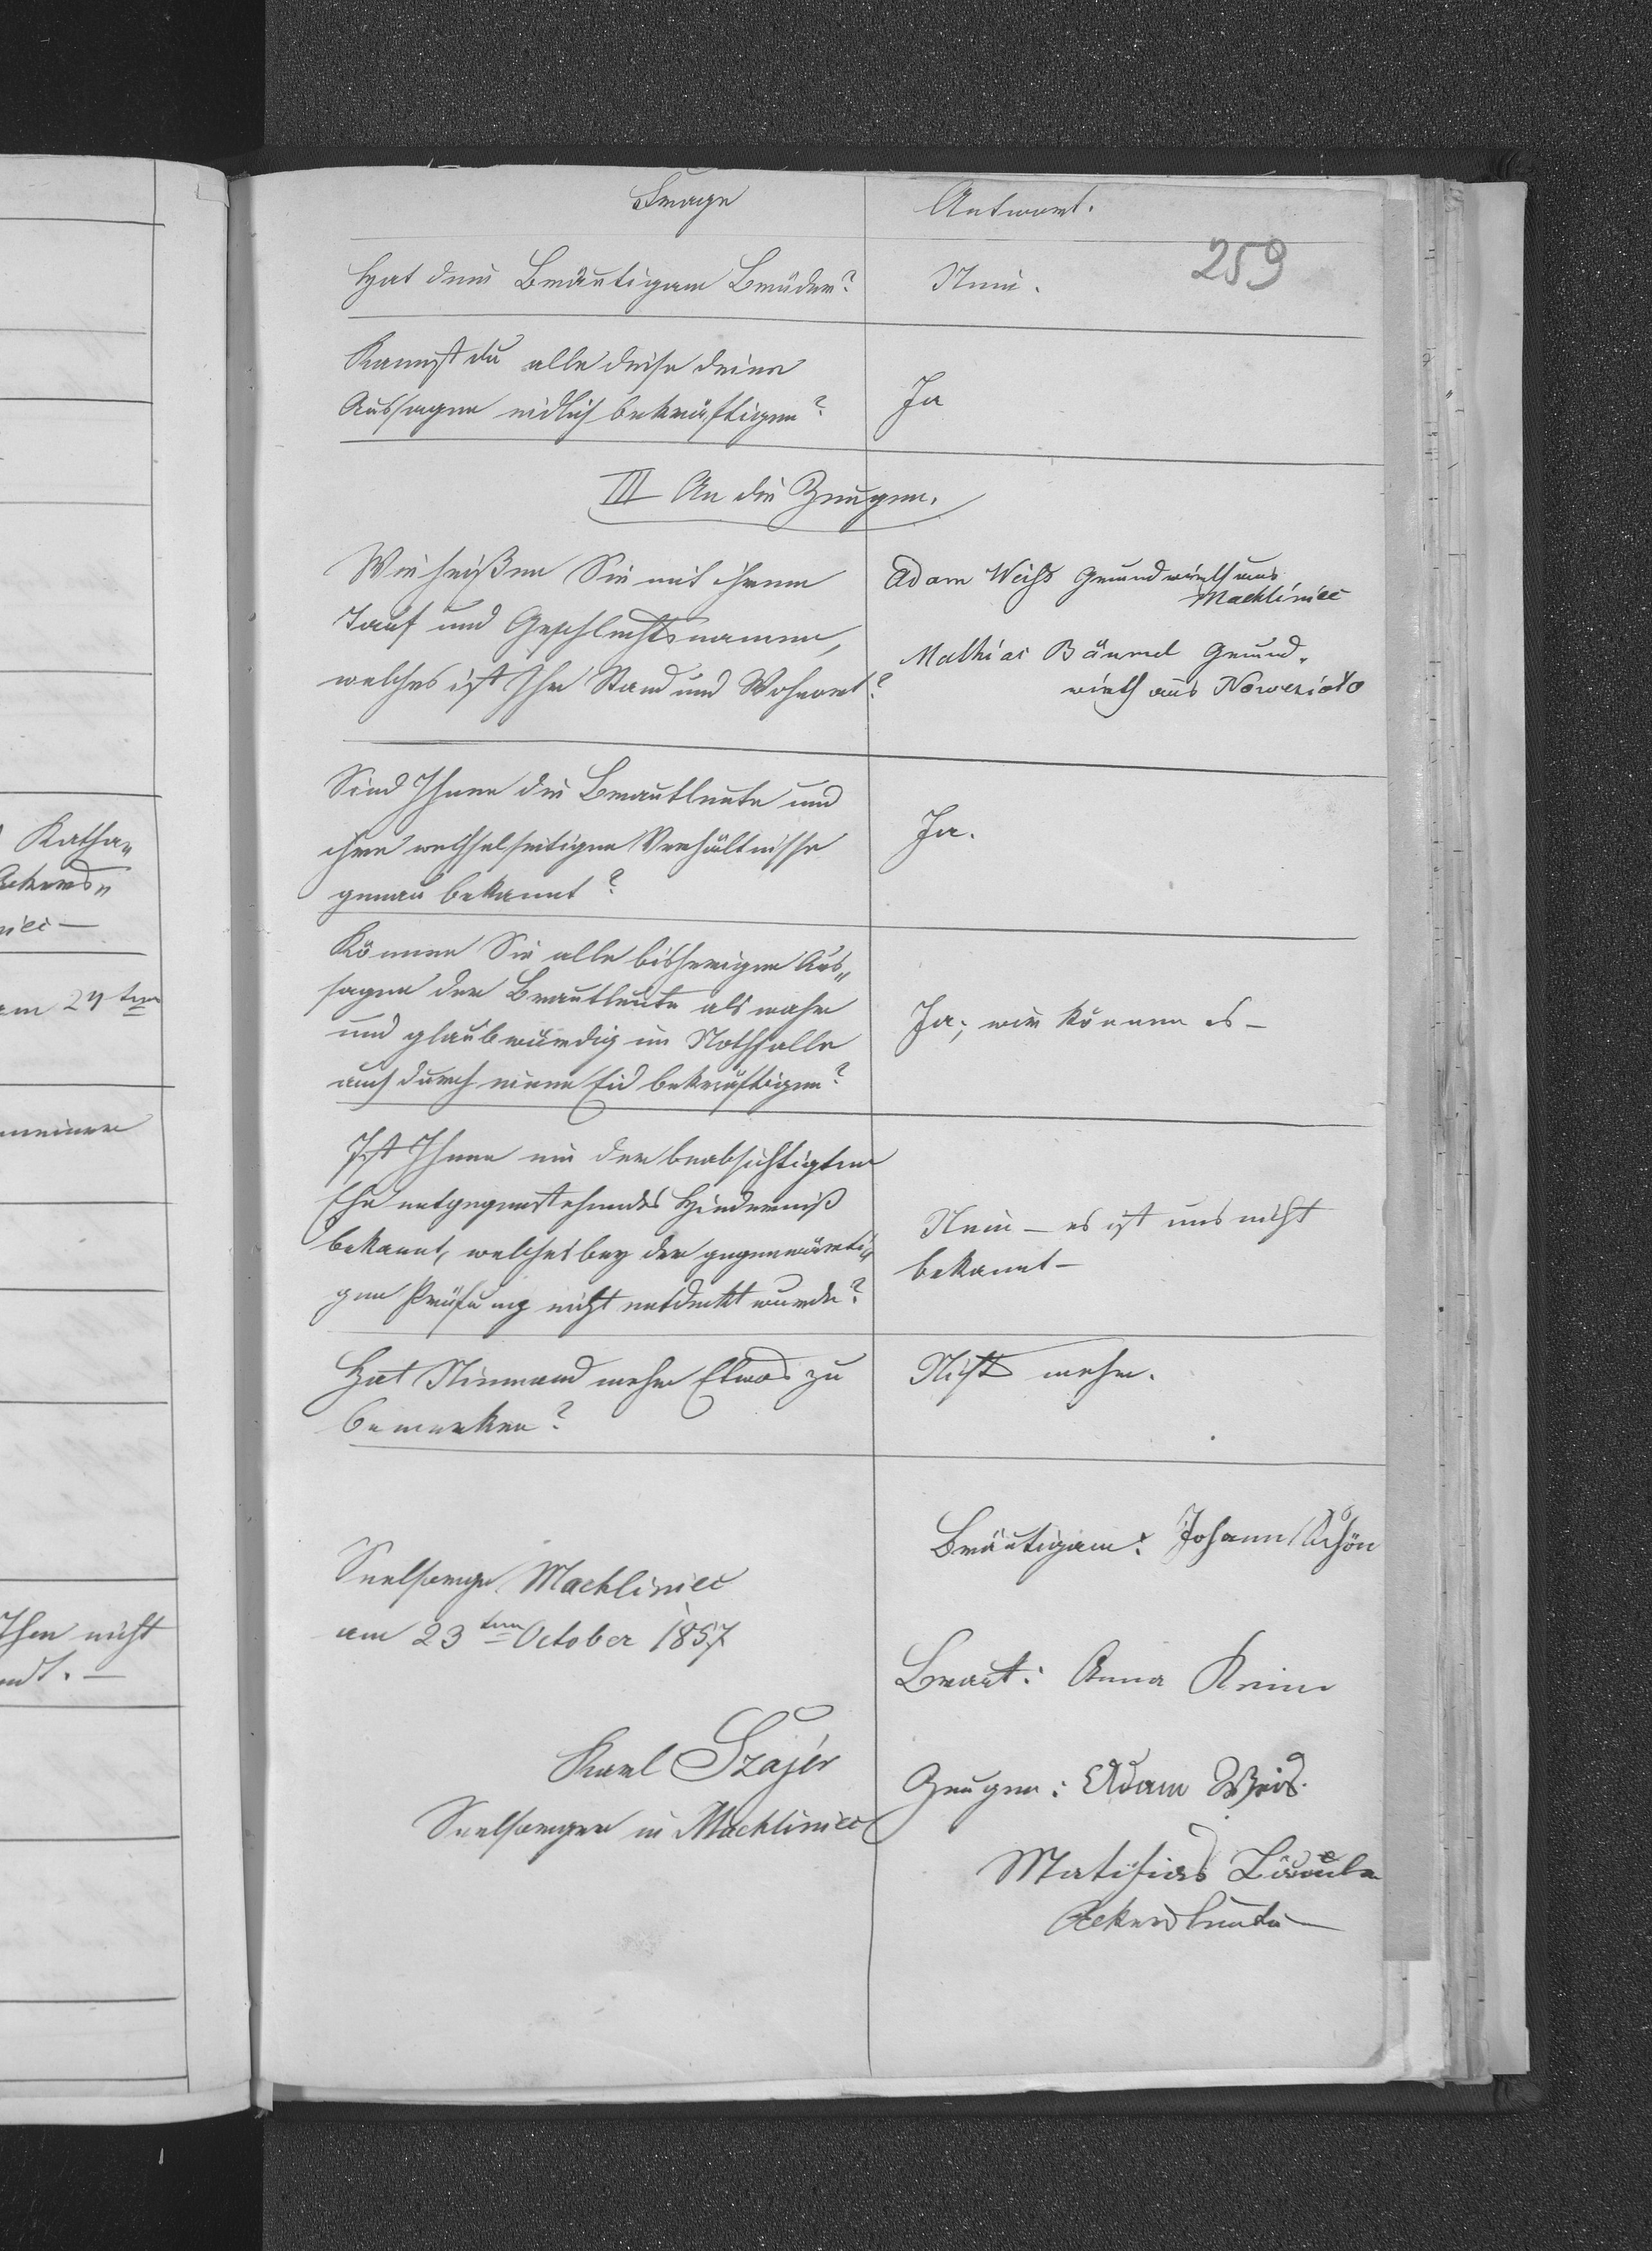 Katha„
Ackers„
niec —
am 24ten
meiner
Ihm nicht
Frage
Antwort.
259
Hat dein Bräutigam Brüder?
Nein.
Kannst du alle diese deine
Aussagen eidlich bekräftigen?
Ja
III An die Zeugen.
Wie heißen Sie mit ihrem
Tauf und Geschlechtsnamen,
welches ist Ihr Stand und Wohnort?
Adam Weiss Grundwirth aus
Machliniec
Mathias Bäuml Grund„
wirth aus Nowesioło
Sind Ihnen die Brautleute und
ihre wechselseitigen Verhältnisse
genau bekannt?
Ja.
Können Sie alle bisherigen Aus„
sagen der Brautleute als wahr
und glaubwürdig im Nothfalle
auch durch einen Eid bekräftigen?
Ja; wir können es —
Ist Ihnen ein der beabsichtigten
Ehe entgegenstehendes Hinderniß
bekannt, welches bey der gegenwärti„
gen Prüfung nicht entdeckt wurde?
Nein — es ist uns nicht
bekannt —
Hat Niemand mehr Etwas zu
bemerken?
Nichts mehr.
Seelsorge Machliniec
am 23ten October 1857
Karl Szajer
Seelsorger in Machliniec
Bräutigam: Johann Schön
Braut: Anna
Zeugen: Adam Weis.
Matihias
Ackersleute